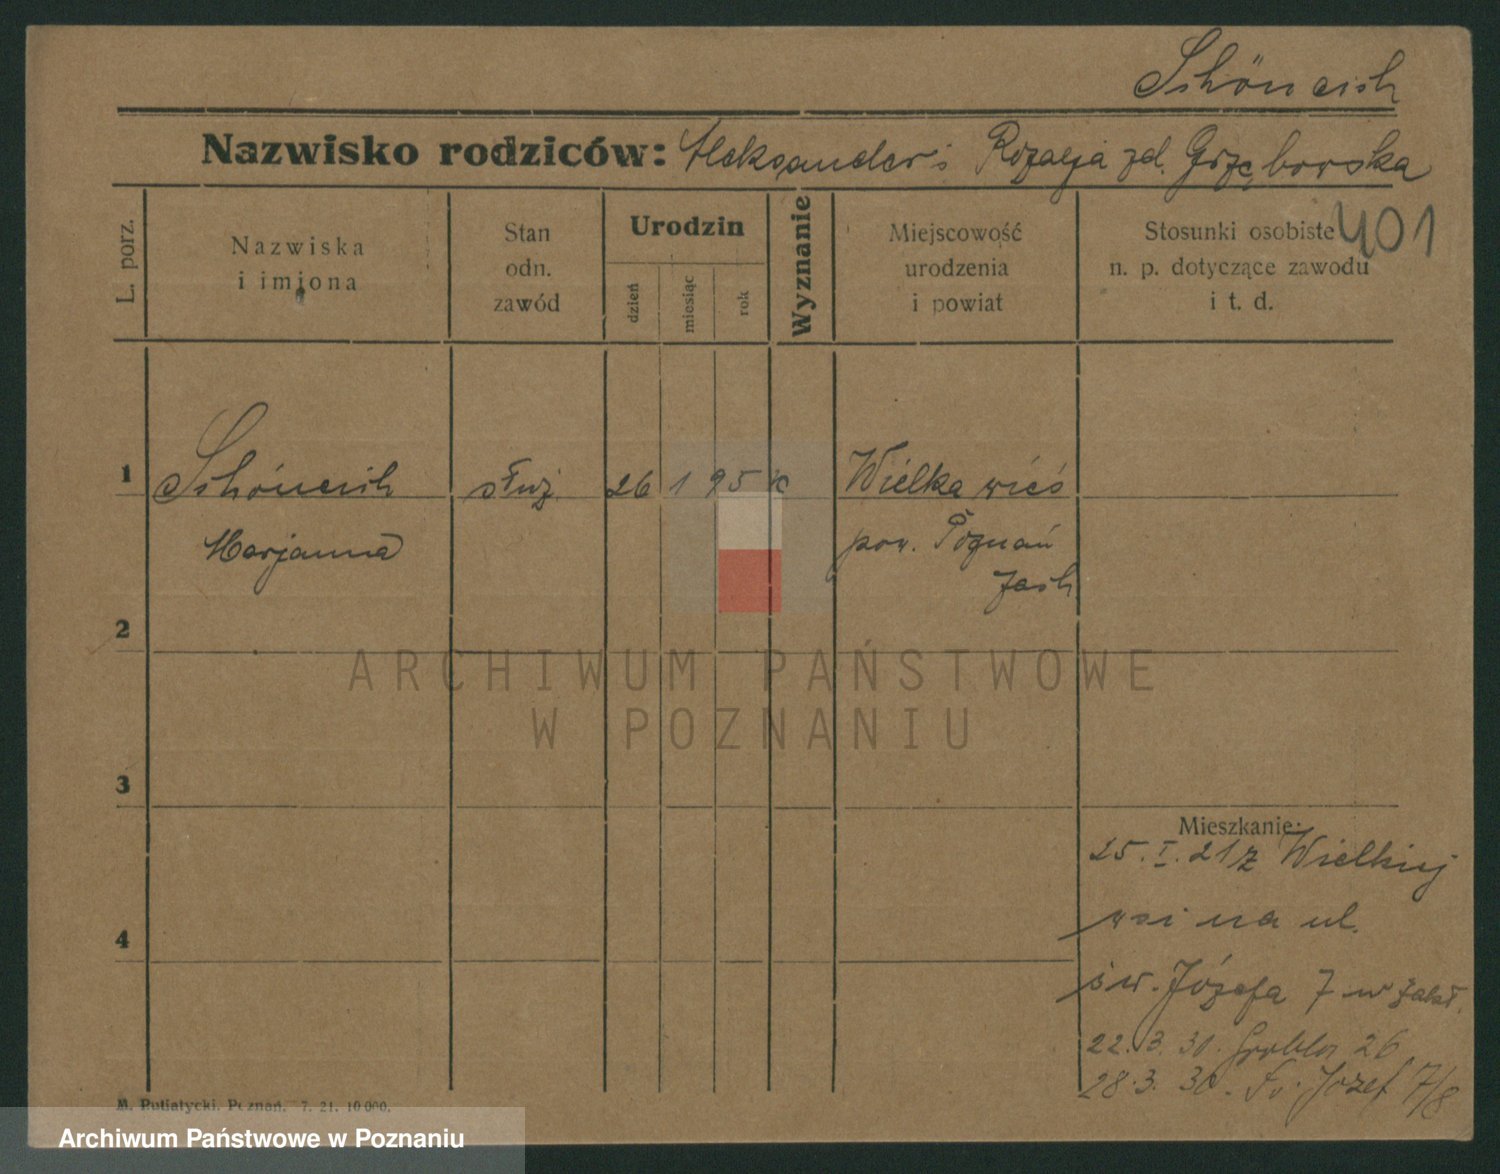 Schöneich
Nazwisko rodziców: Aleksander i Rozalja zd. Grzęborska
401
L. porz.
Nazwiska
i imiona
Stan
odn.
zawód
Urodzin
dzień
miesiąc
rok
Wyznanie
Miejscowość
urodzenia
i powiat
Stosunki osobiste
n. p. dotyczące zawodu
i t. d.
1 Schöneich służ. 26 1 95 k Wielka wieś
Marjanna pow. Poznań
Zach.
2
3
4
Mieszkanie:
25. I. 21 z Wielkiej
wsi na ul.
św. Józefa 7 w zakł.
22. 3. 30. Grobla 26
28. 3. 30. Św. Józef 7/8
M. Putiatycki, Poznań. 7. 21. 10 000.
ARCHIWUM PAŃSTWOWE
W POZNANIU
Archiwum Państwowe w Poznaniu